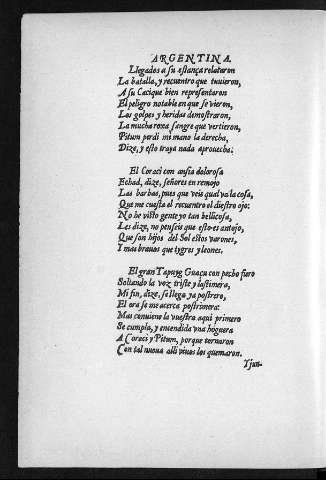 ARGENTINA.
Llegados a su estança relataron
La batalla, y recuentro que tuuieron,
A su Cacique bien representaron
El peligro notable en que se vieron,
Los golpes y heridas demostraron,
La mucha roxa sangre que vertieron,
Pitum perdi mi mano la derecha,
Dize, y esto traya nada aprouecha:
El Coraci con ansia dolorosa
Echad, dize, señores en remojo
Las barbas, pues que veis qual va la cosa,
Que me cuesta el recuentro el diestro ojo:
No he visto gente yo tan bellicosa,
Les dize, no penseis que esto es antojo,
Que son hijos del Sol estos varones,
Y mas brauos que tygres y leones.
El gran Tapuyg Guaçu con pecho fiero
Soltando la voz triste y lastimera,
Mi fin, dize, se llega ya postrero,
El ora se me acerca postrimera:
Mas conuiene la vuestra aqui primero
Se cumpla, y encendida vna hoguera
A Coraci y Pitum, porque tornaron
Con tal nueua alli viuos los quemaron.